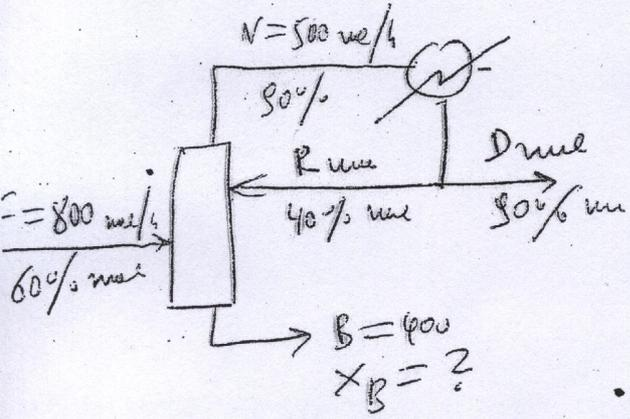 V = 500 mol/h
90%
R mol
D mol
F = 800 mol/h
40% mol
90% m
60% mol
B = 400
X_B = ?